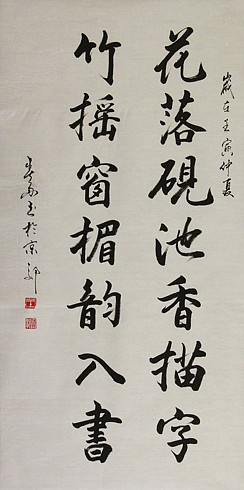 歲在壬寅仲夏
花落硯池香描字
竹摇窗楣韵入書
於京郊